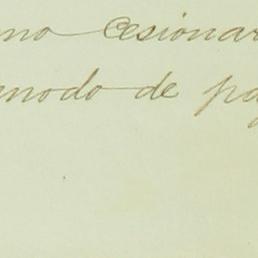 mo cesionar
modo de pa